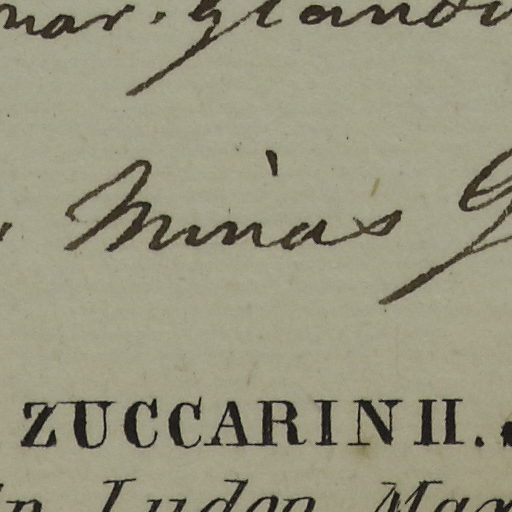 mar. Glandu
Minas G
ZUCCARINII.
in Ludov Mar